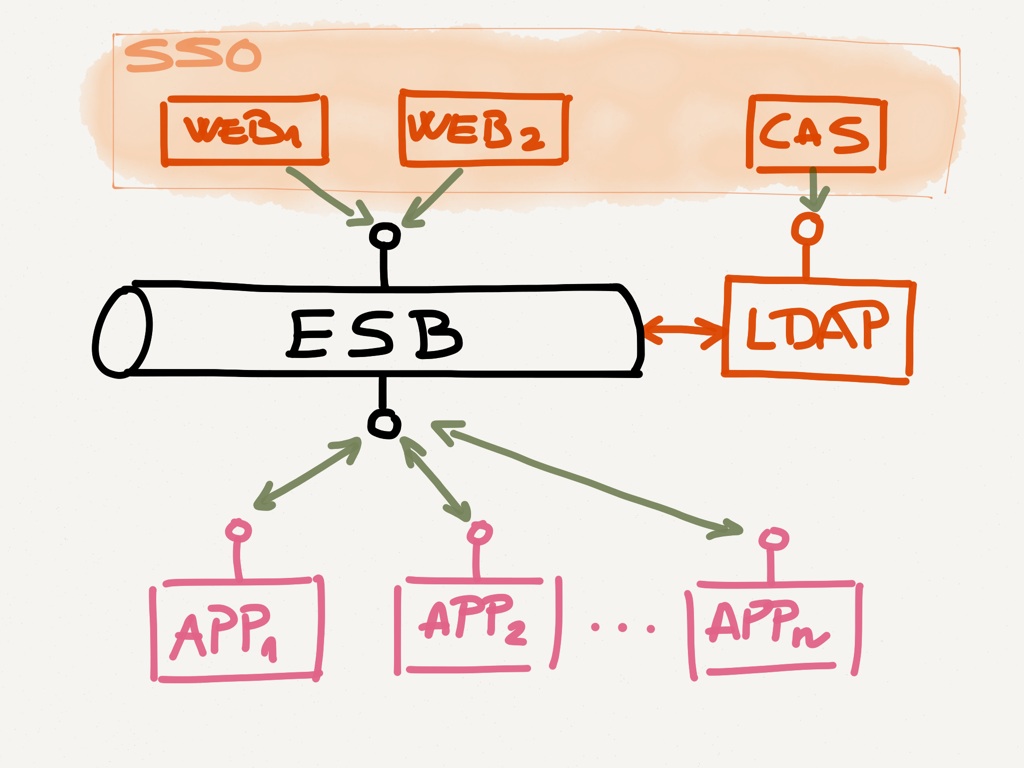 SSO
WEB1
WEB2
CAS
ESB
LDAP
APP1
APP2
...
APPn